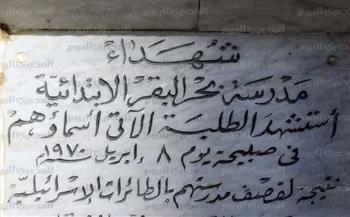 شهداء
مدرسة بحر البقر الابتدائية
أستشهد الطلبة الآتى أسماؤهم
فى صبيحة يوم ٨ إبريل ١٩٧٠م
نتيجة لقصف مدرستهم بالطائرات الإسرائيلية